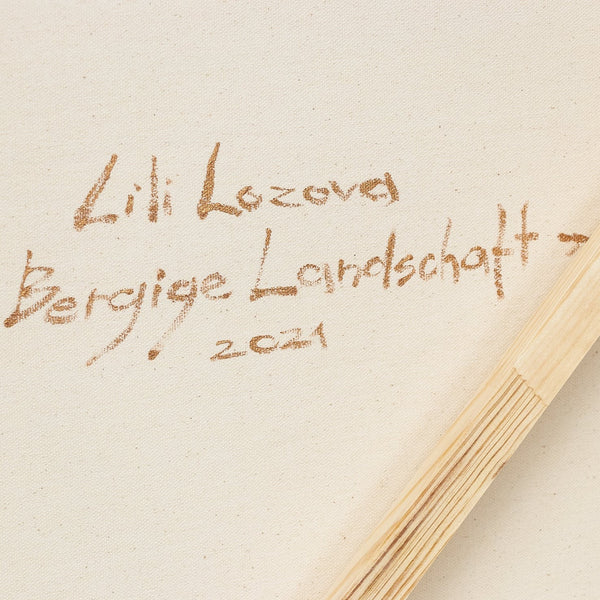 Lili Lozova
Bergige Landschaft →
2021